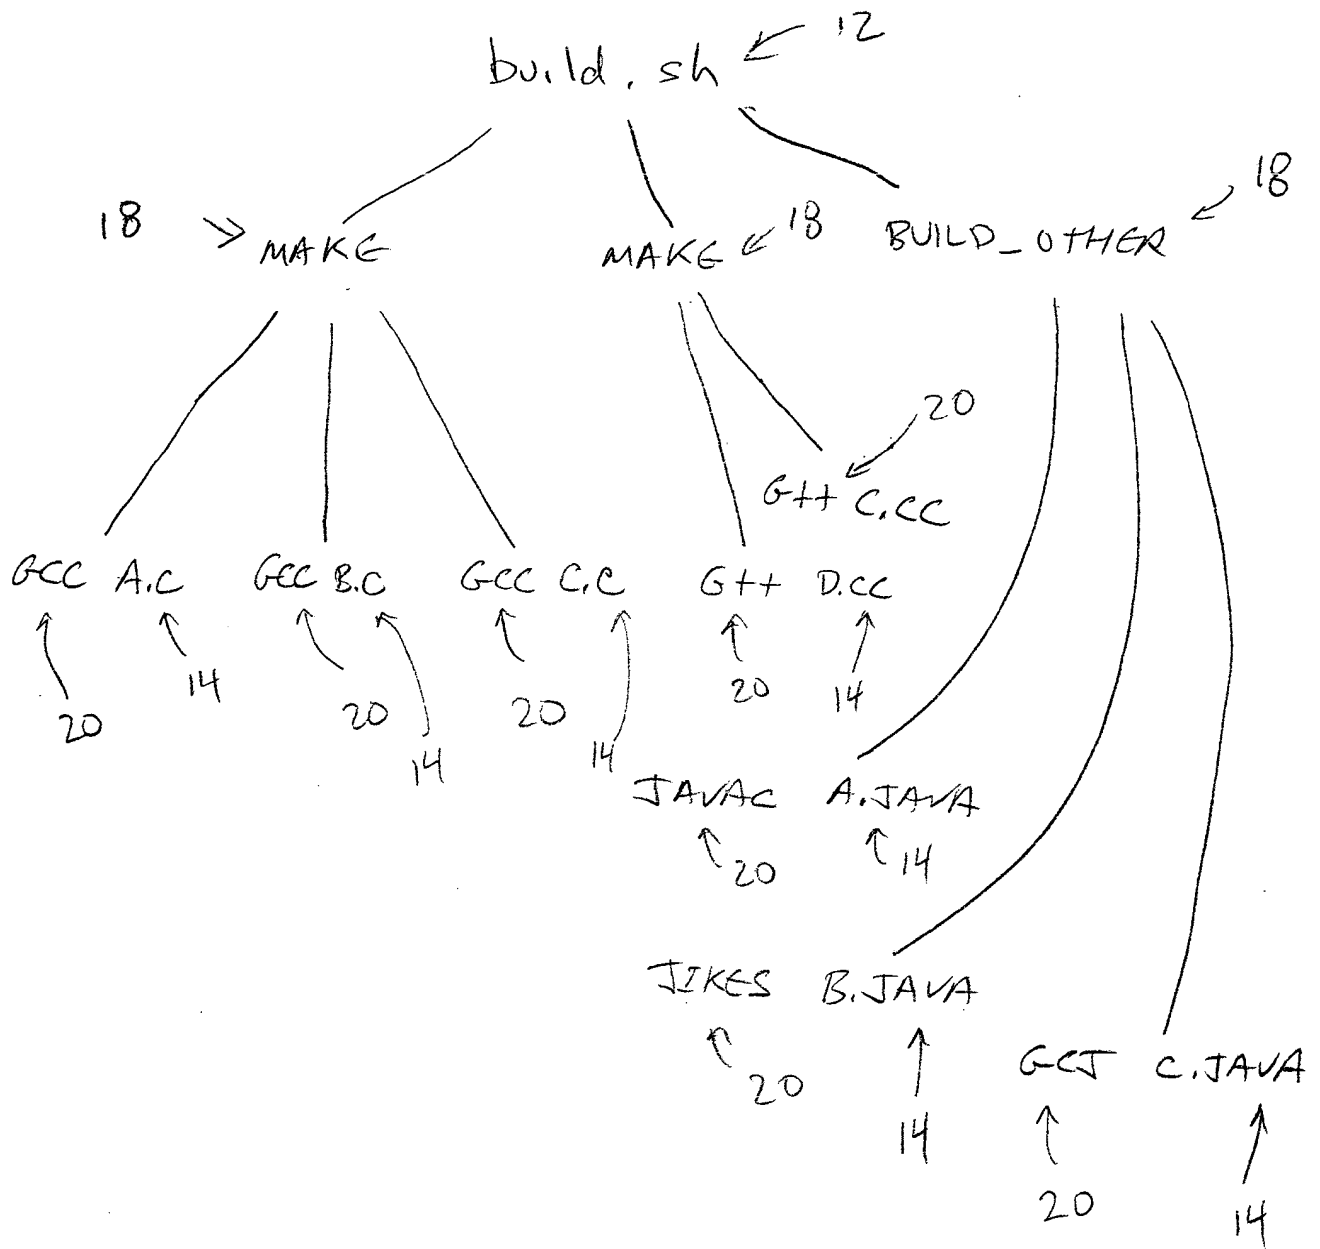 build.sh 12
18 MAKE MAKE 18 BUILD_OTHER 18
20
G++ C.CC
GCC A.C GCC B.C GCC C.C G++ D.CC
20 14 20 14 20 14 20 14
JAVAC A.JAVA
20 14
JIKES B.JAVA
20 14
GCJ C.JAVA
20 14